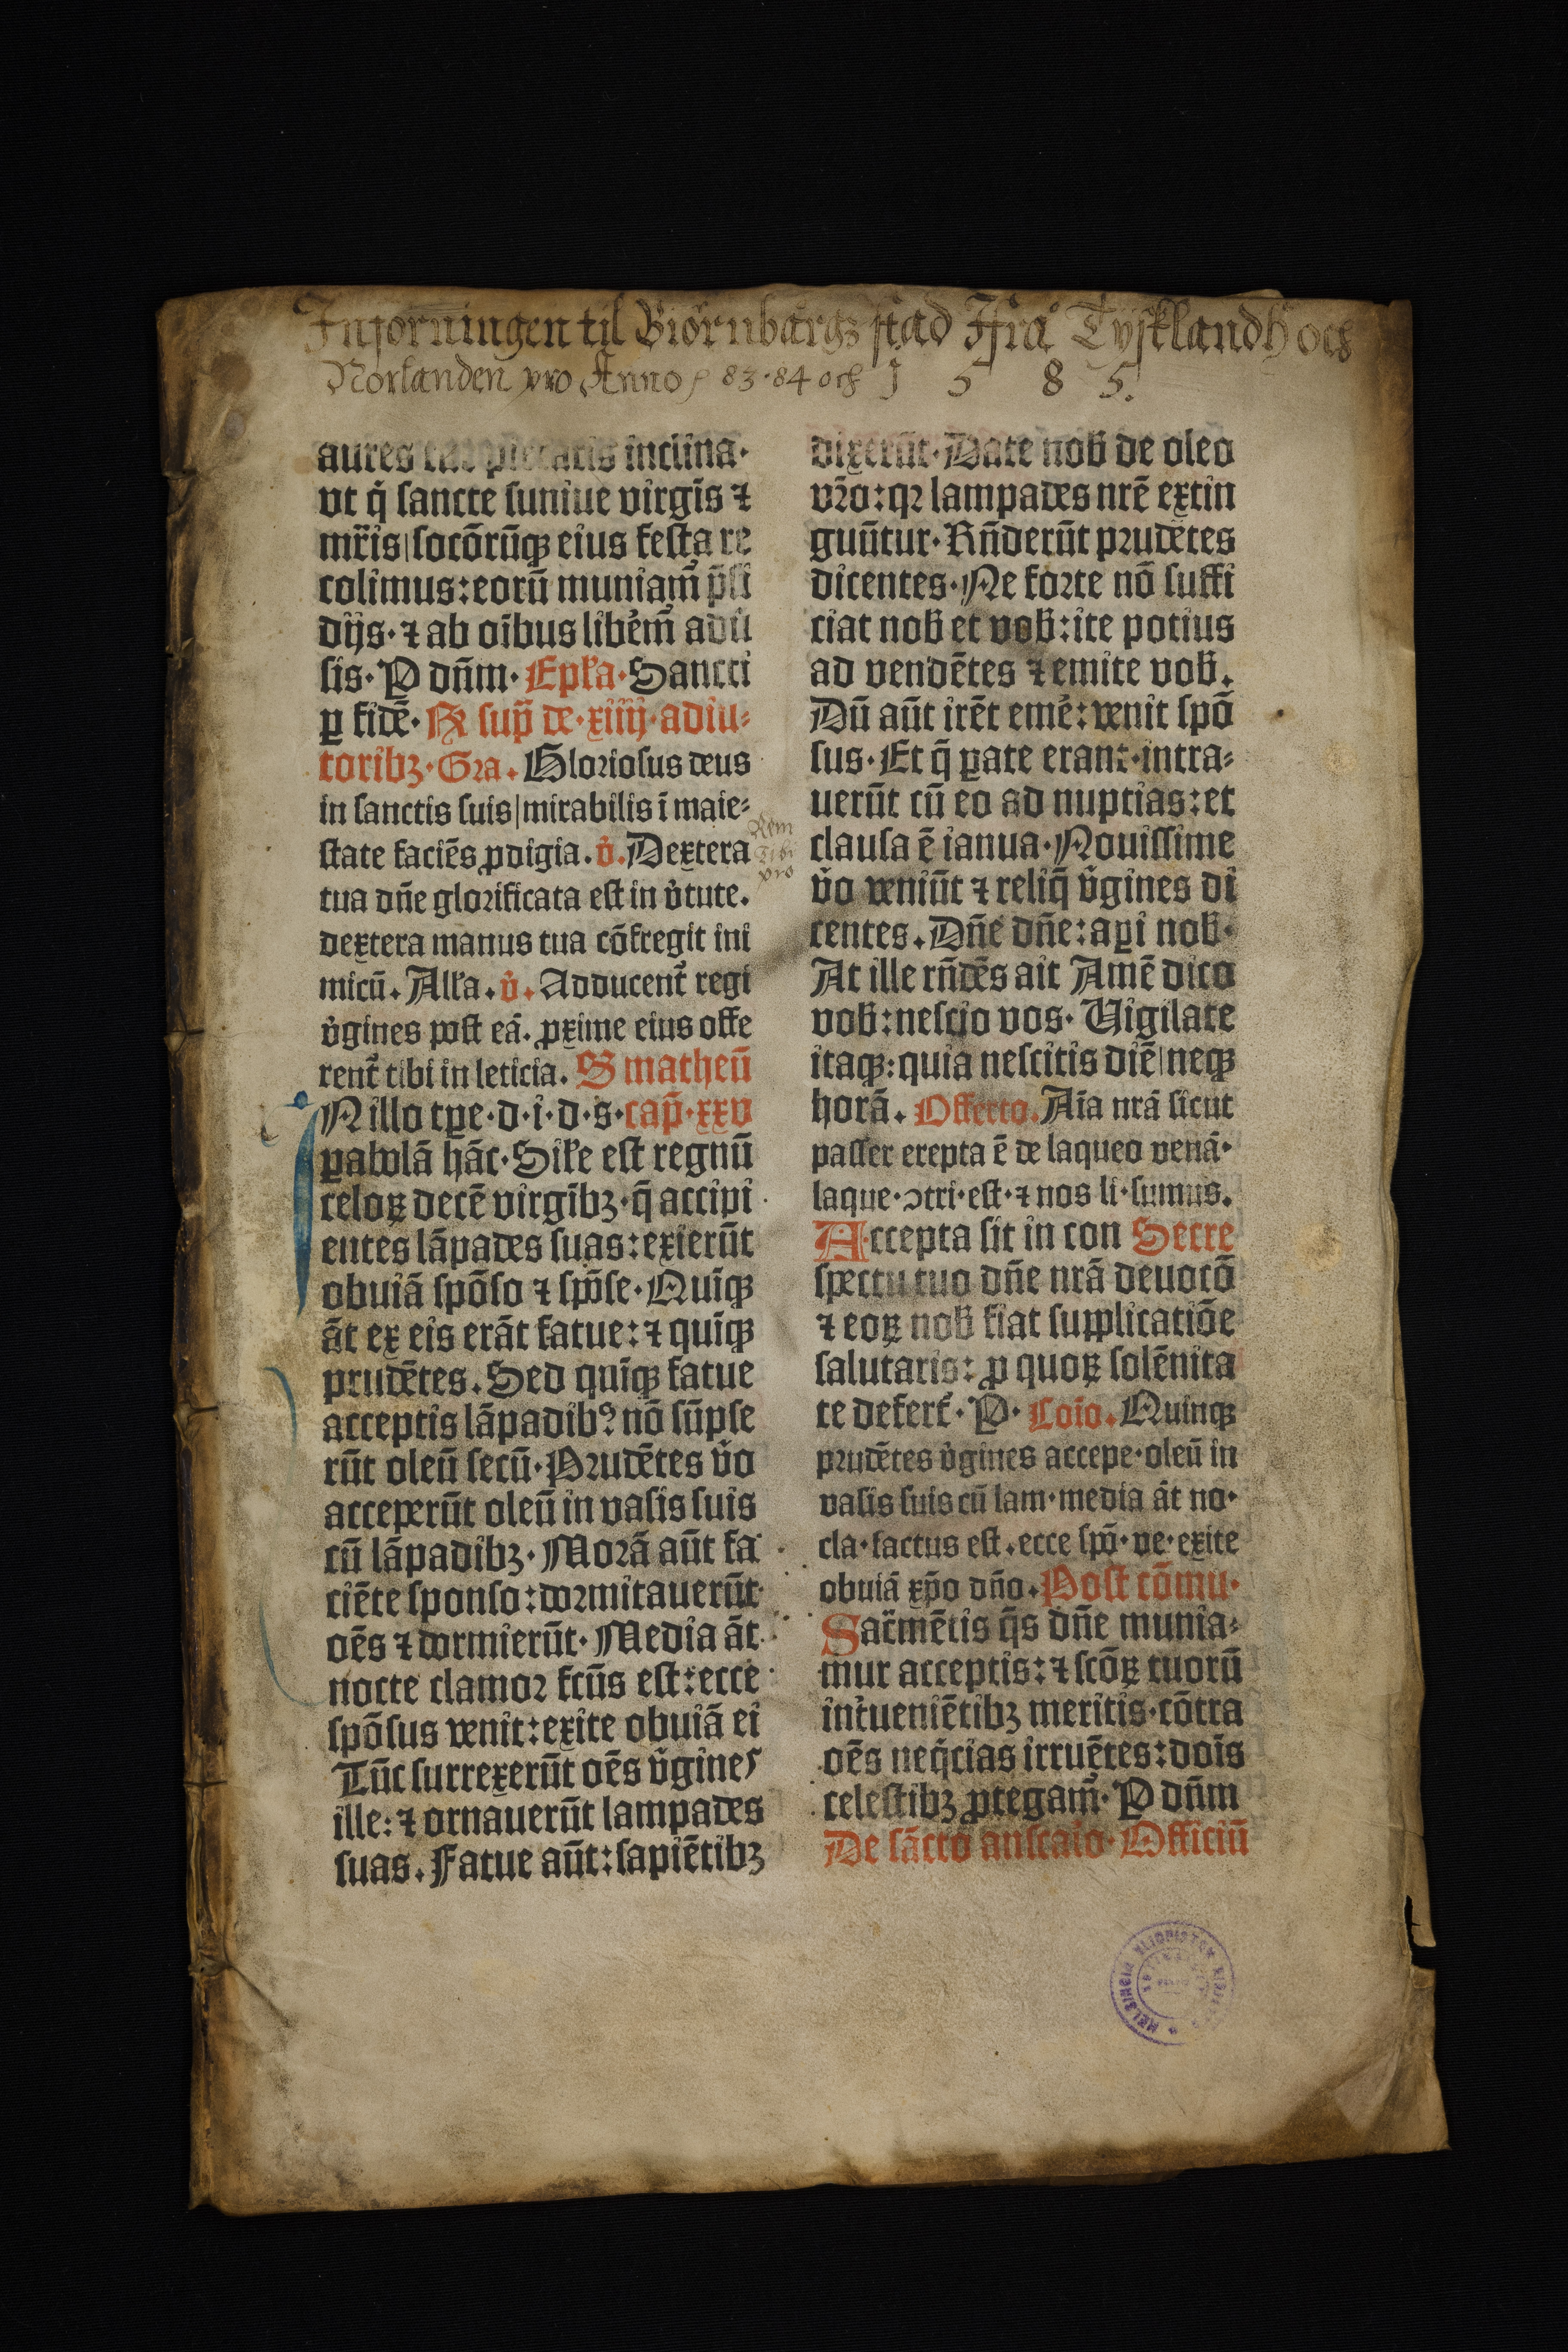 Införningen til Biörnbargz stad Ifrå Tysklandh och
Norlanden pro Anno 83·84 och 1 5 8 5.
aures tue pietatis inclina·
vt q̇ sancte suniue virgīs ⁊
mr̄is|socōrūqꝫ eius festa re
colimus:eorū muniam᷑ p̄si
dijs·⁊ ab oībus libe᷑m᷑ adū
sis·P dn̄m·Epl'a·Sancti
ꝑ fidē·R sup̄ de·xiiij·adiu⸗
toribꝫ·Gra.Gloriosus deus
in sanctis suis|mirabilis ī maie⸗
state faciēs ꝓdigia.v̓.Dextera
tua dn̄e glorificata est in v̓tute.
dextera manus tua cōfregit ini
micū.All'a.v̓.Adducent᷑ regi
v̓gines post eā.ꝓxime eius offe
rent᷑ tibi in leticia.S matheū
Nillo tꝑe·d·i·d·s·cap̄·xxv
ꝑabolā hāc·Sil'e est regnū
celoꝝ decē virgībꝫ·q̄ accipi
entes lāpades suas:exierūt
obuiā spōso ⁊ spōse·Quīqꝫ
āt ex eis erāt fatue:⁊ quīqꝫ
prudētes.Sed quīqꝫ fatue
acceptis lāpadibꝰ nō sūpse
rūt oleū secū·Prudētes v̓o
acceperūt oleū in vasis suis
cū lāpadibꝫ·Morā aūt fa
ciēte sponso:dormitauerūt
oēs ⁊ dormierūt·Media āt
nocte clamor fcūs est:ecce
spōsus venit:exite obuiā ei
Tūc surrexerūt oēs v̓gines
ille:⁊ ornauerūt lampades
suas.Fatue aūt:sapiētibꝫ
Rem
Tibi
pro
dixerūt·Date nob̄ de oleo
vr̄o:qꝛ lampades nrē extin
guūtur·Rn̄derūt prudētes
dicentes·Ne forte nō suffi
ciat nob̄ et vob̄:ite potius
ad vendētes ⁊ emite vob̄.
Dū aūt irēt eme᷑:venit spō
sus·Et q̄ ꝑate erant·intra⸗
uerūt cū eo ad nuptias:et
clausa ē ianua·Nouissime
v̓o veniūt ⁊ reliq̄ v̓gines di
centes.Dn̄e dn̄e:aꝑi nob̄·
At ille rn̄dēs ait Amē dico
vob̄:nescio vos·Vigilate
itaqꝫ:quia nescitis diē|neqꝫ
horā.Offerto.Aīa nrā sicut
passer erepta ē de laqueo venā·
laque·ↄtri·est·⁊ nos li·sumus.
Accepta sit in con Secre
spectu tuo dn̄e nrā deuotō
⁊ eoꝝ nob̄ fiat supplicatiōe
salutaris:ꝓ quoꝝ solēnita
te defert᷑·P·Coīo.Quinqꝫ
prudētes v̓gines accepe·oleū in
vasis suis cū lam·media āt no·
cla·factus est.ecce spō·ve·exite
obuiā xp̄o dn̄o.Post cōmu·
Sac̄mētis q̄s dn̄e munia⸗
mur acceptis:⁊ scōꝝ tuorū
int᷑ueniētibꝫ meritis·cōtra
oēs neq̇cias irruētes:dois
celestibꝫ ꝓtegam᷑·P dn̄m
De sācto anscaio·Officiū